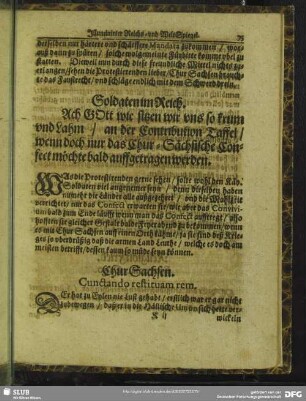 Illuminirter Reichs- vnd Welt-Spiegel. 75
derselben mit härtern vnd schärffern Mandatis zukommen /
auß dann zu spüren / solche wolgemeinte
statten. Dieweil nun durch diese freundliche Mittel nichts
erlangen / sehen die Protestirenden lieber / Chur Sachsen
das Faustrecht / vnd schlage endlich mit dem Schwerdt
Soldaten im Reich.
Ach GOtt wie sitzen wir vns so krum
vnd Lahm / an der Contribution Taffel /
wenn doch nur das Chur-Sächsische Con-
fect möchte bald auffgetragen werden.
WAs die Protestirenden gerne sehen / solte wohl den
Soldaten viel angenemer seyn / denn dieselben haben
nunmehr die Länder alle außgezehret / vnd die Mahlzeit
verrichtet / nur das Confect erwarten sie / wie aber das Convivi-
um bald zum Ende läufft wenn man das Confect aufftregt / also
hofften sie gleicher Gestalt balde Feyerabend zu bekommen / wenn
es mit Chur Sachsen auff einen Streit käme / sie sind diß Krie-
ges so vberdrüssig / daß die armen Land Leuthe / welche es doch am
meisten betrifft / dessen kaum so müde seyn können.
Chur Sachsen.
Cunctando restituam rem.
ER hat zu Eylen nie Lust gehabt / erstlich war er gar nicht
zubewegen / daß er in die Hällische Union sich hette ver-
K ij wickeln
SLUB
DFG